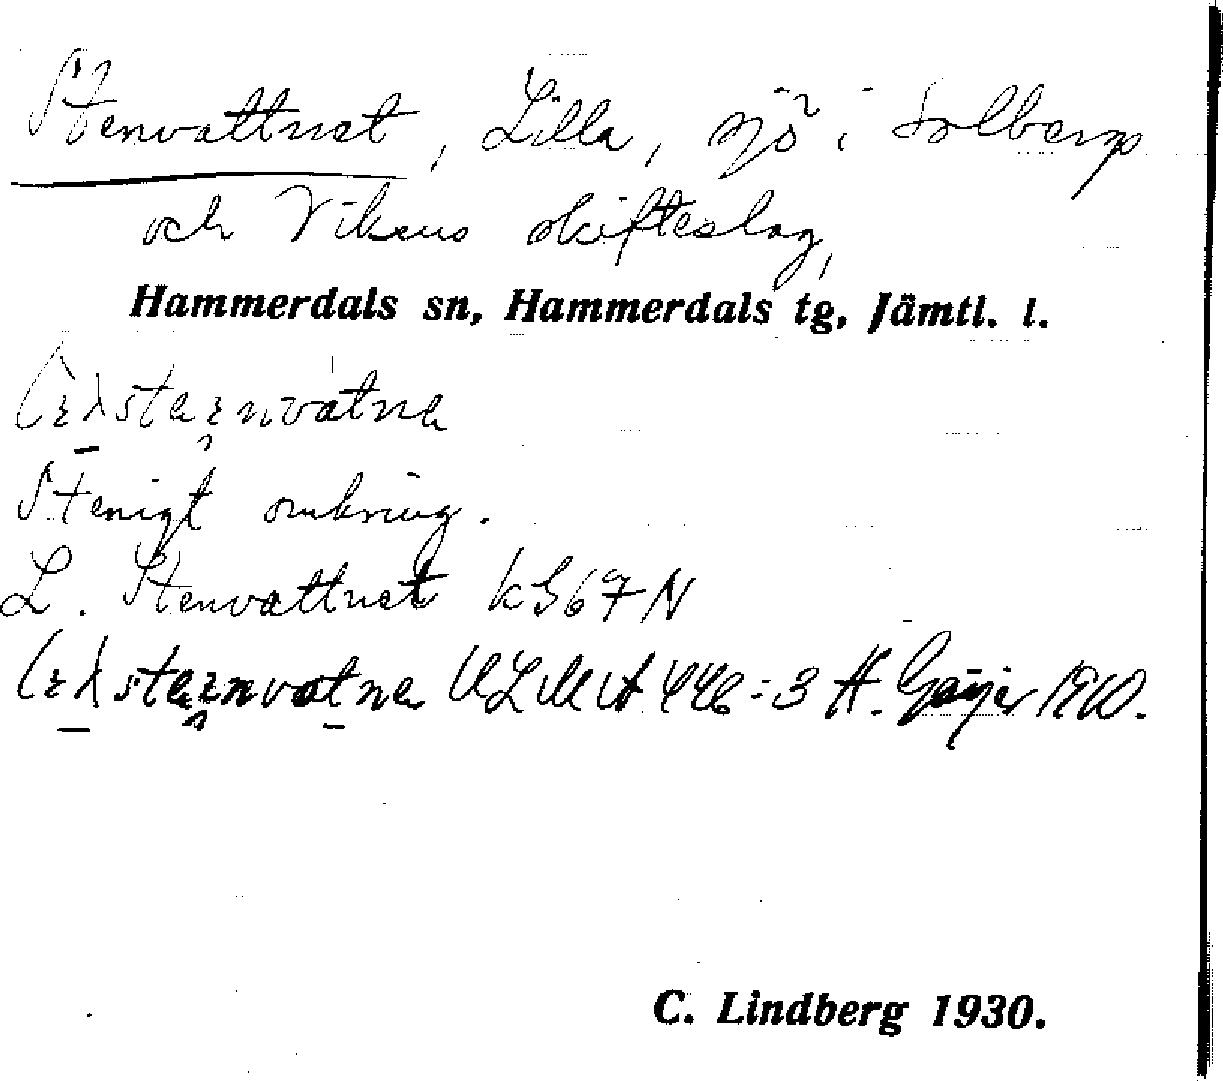 Stenvattnet, Lilla, sjö i Solbergs
och Vikens skifteslag,
Hammerdals sn, Hammerdals tg, Jämtl. l.
Stenigt omkring.
L. Stenvattnet kG67N
ULMA 446:3 H. Geijer 1910.
C. Lindberg 1930.